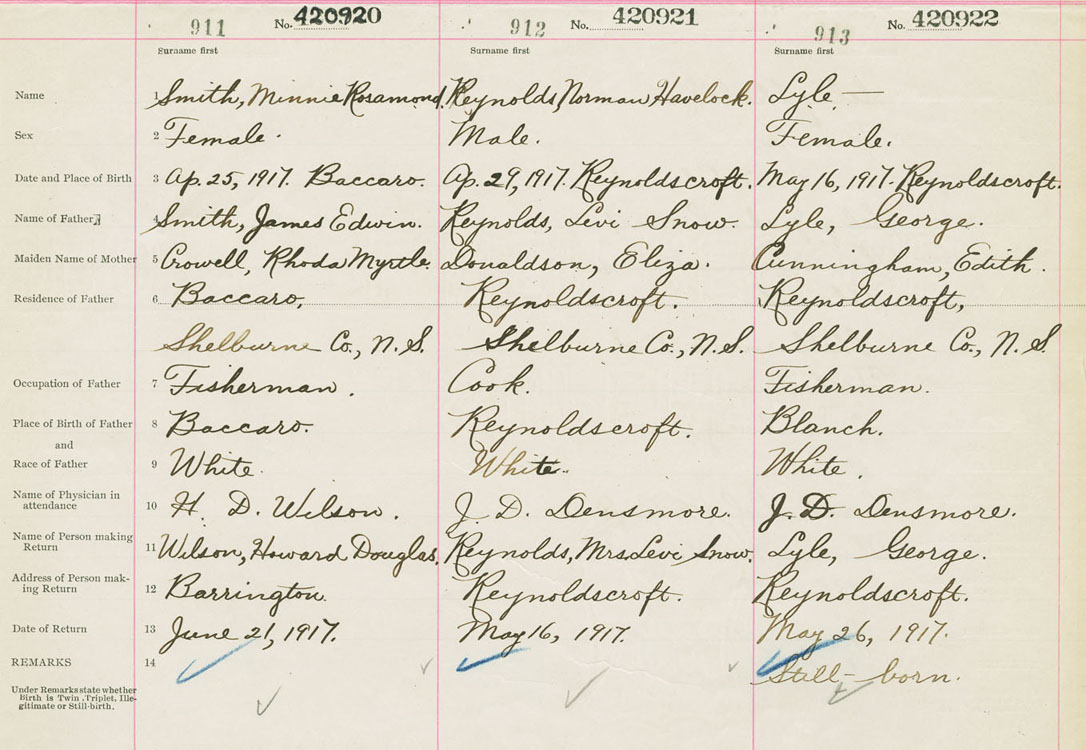 911 No. 420920 912 No. 420921 913 No. 420922
Surname first Surname first Surname first
Name 1 Smith, Minnie Rosamond. Reynolds, Norman Havelock. Lyle —
Sex 2 Female. Male. Female.
Date and Place of Birth 3 Ap. 25, 1917. Baccaro. Ap. 29, 1917. Reynoldscroft. May 16, 1917. Reynoldscroft.
Name of Father 4 Smith, James Edwin. Reynolds, Levi Snow. Lyle, George.
Maiden Name of Mother 5 Crowell, Rhoda Myrtle. Donaldson, Eliza. Cunningham, Edith.
Residence of Father 6 Baccaro, Reynoldscroft. Reynoldscroft,
Shelburne Co., N.S. Shelburne Co., N.S. Shelburne Co., N.S.
Occupation of Father 7 Fisherman. Cook. Fisherman.
Place of Birth of Father 8 Baccaro. Reynoldscroft. Blanch.
and
Race of Father 9 White. White. White.
Name of Physician in
attendance 10 H. D. Wilson. J. D. Densmore. J. D. Densmore.
Name of Person making
Return 11 Wilson, Howard Douglas. Reynolds, Mrs. Levi Snow. Lyle, George.
Address of Person mak-
ing Return 12 Barrington. Reynoldscroft. Reynoldscroft.
Date of Return 13 June 21, 1917. May 16, 1917. May 26, 1917.
REMARKS 14 Still-born.
Under Remarks state whether
Birth is Twin, Triplet, Ille-
gitimate or Still-birth.